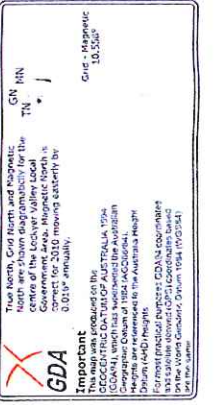 True North, Grid North and Magnetic
North are shown diagramatically for the
centre of the Lockyer Valley Local
Government Area. Magnetic North is
correct for 2010 moving easterly by
0.019° annually.
TN GN MN
Grid - Magnetic
10.556°
GDA
Important
This map was produced on the
GEOCENTRIC DATUM OF AUSTRALIA 1994
(GDA94) which has superseded the Australian
Geographic Datum of 1984 (AGD66/84).
Heights are referenced to the Australia Height
Datum (AHD) Heights
For most practical purposes GDA94 coordinates
and satellite derived (GPS) coordinates based
on the World Geodetic Datum 1984 (WGS84)
are the same